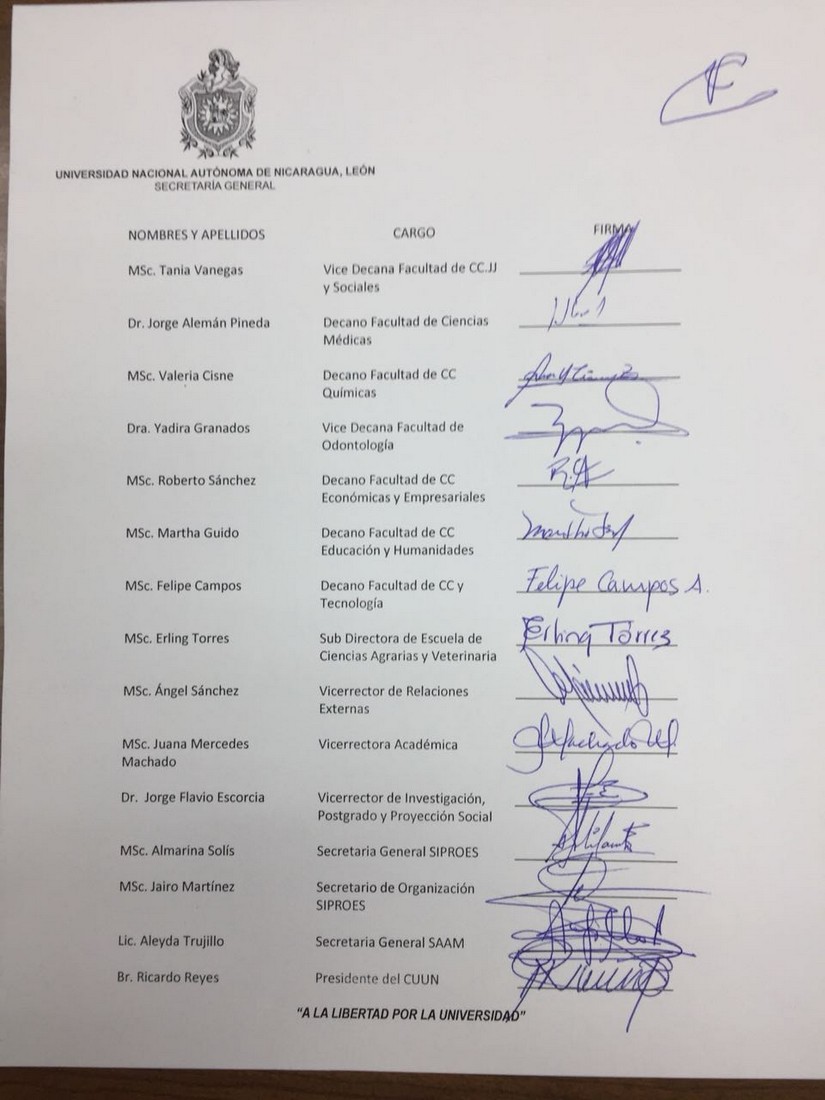 UNIVERSIDAD NACIONAL AUTÓNOMA DE NICARAGUA, LEÓN
SECRETARÍA GENERAL
NOMBRES Y APELLIDOS CARGO FIRMA
MSc. Tania Vanegas Vice Decana Facultad de CC.JJ
y Sociales
Dr. Jorge Alemán Pineda Decano Facultad de Ciencias
Médicas
MSc. Valeria Cisne Decano Facultad de CC
Químicas
Dra. Yadira Granados Vice Decana Facultad de
Odontología
MSc. Roberto Sánchez Decano Facultad de CC
Económicas y Empresariales
MSc. Martha Guido Decano Facultad de CC
Educación y Humanidades
MSc. Felipe Campos Decano Facultad de CC y Felipe Campos A.
Tecnología
MSc. Erling Torres Sub Directora de Escuela de Erling Torres
Ciencias Agrarias y Veterinaria
MSc. Ángel Sánchez Vicerrector de Relaciones
Externas
MSc. Juana Mercedes Vicerrectora Académica
Machado
Dr. Jorge Flavio Escorcia Vicerrector de Investigación,
Postgrado y Proyección Social
MSc. Almarina Solís Secretaria General SIPROES
MSc. Jairo Martínez Secretario de Organización
SIPROES
Lic. Aleyda Trujillo Secretaria General SAAM
Br. Ricardo Reyes Presidente del CUUN
"A LA LIBERTAD POR LA UNIVERSIDAD"